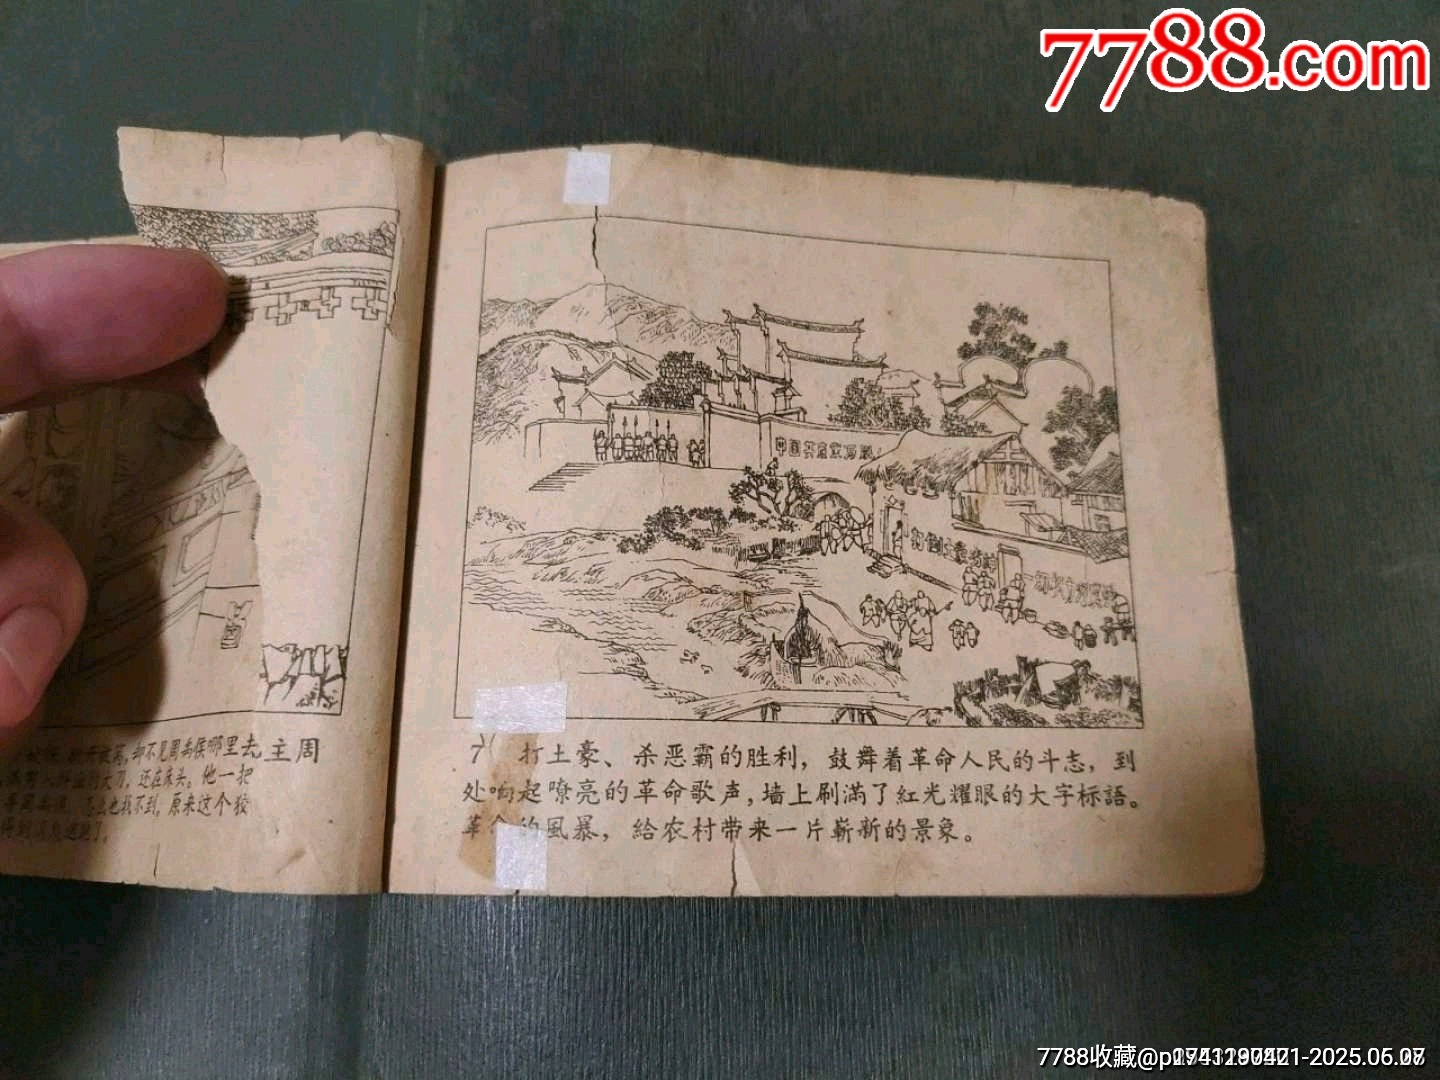 7788.com
中国共产党万
打倒土豪劣紳
主周
却不见周禹侯哪里去
大刀，还在床头。他一把
怎么也找不到。原来这个狡
了。
7 打土豪、杀恶霸的胜利，鼓舞着革命人民的斗志，到
处响起嘹亮的革命歌声，墙上刷滿了紅光耀眼的大字标語。
革命的風暴，給农村带来一片嶄新的景象。
7788收藏@p
-2025.05.07